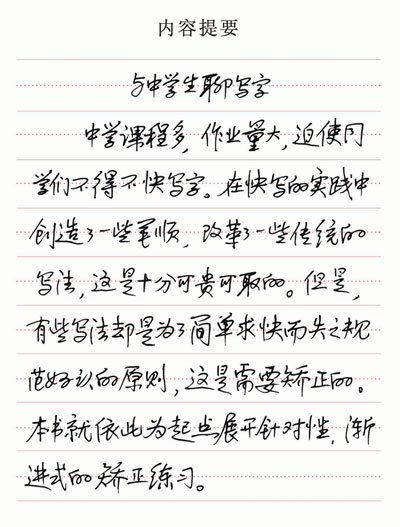 内容提要
与中学生聊写字
中学课程多，作业量大，迫使同
学们不得不快写字。在快写的实践中
创造了一些笔顺，改革了一些传统的
写法，这是十分可贵可取的。但是，
有些写法却是为了简单求快而失之规
范好认的原则，这是需要矫正的。
本书就依此为起点展开针对性，渐
进式的矫正练习。